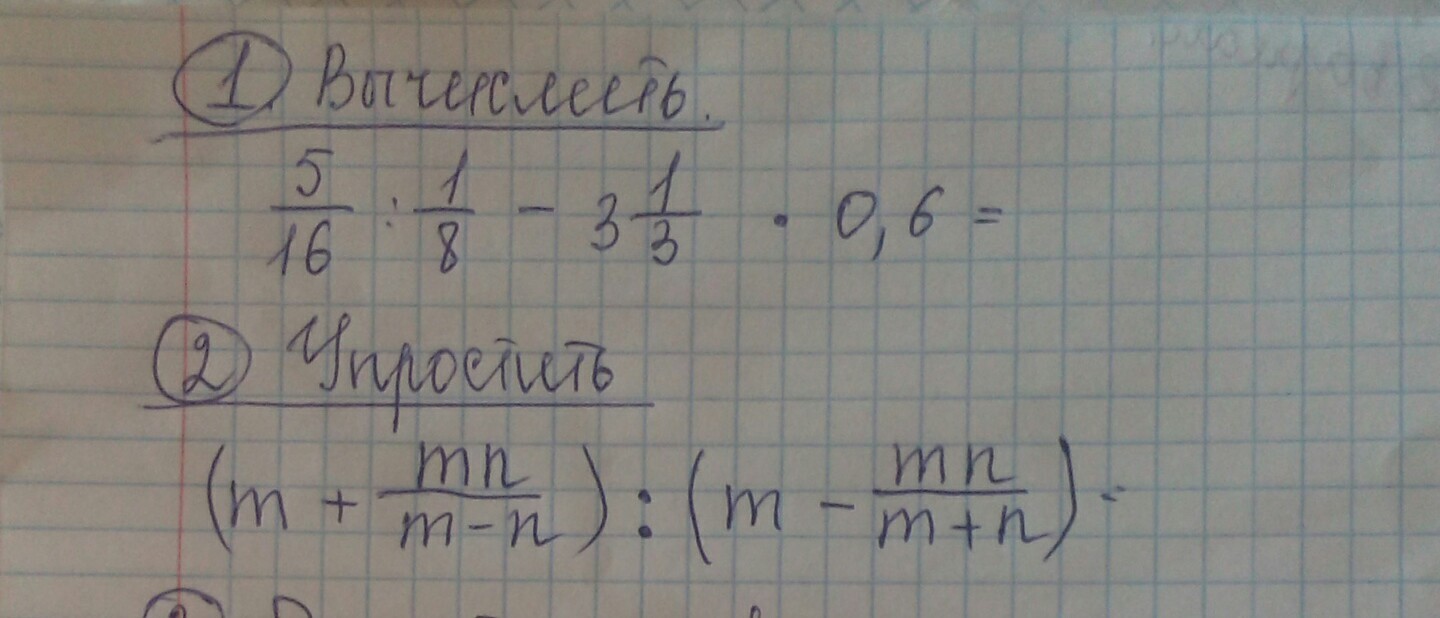 1 Вычислить.
5/16 : 1/8 - 3 1/3 · 0,6 =
2 Упростить
(m + mn/(m-n)) : (m - mn/(m+n)) =